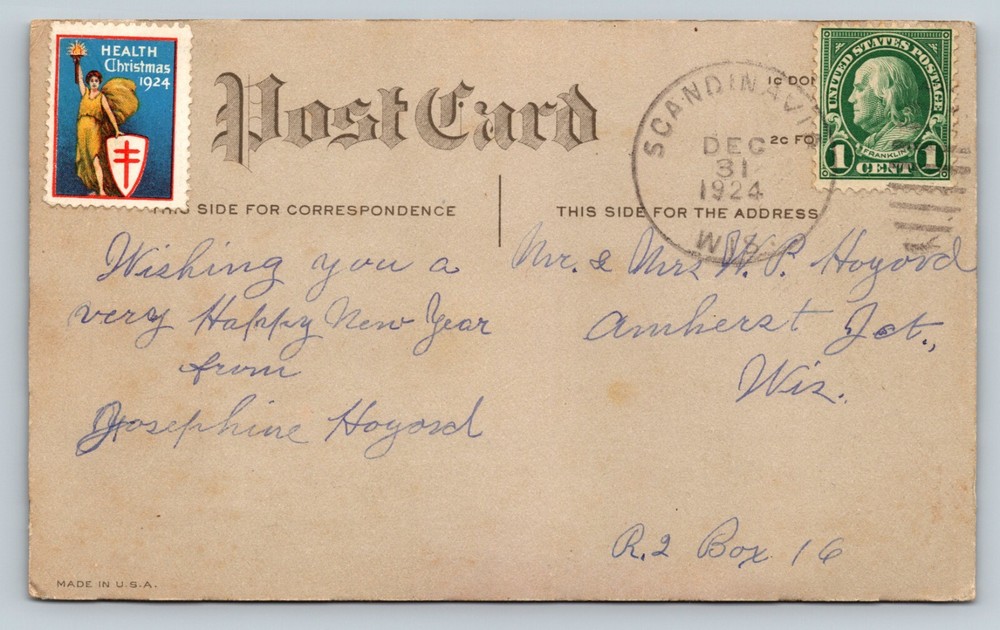 HEALTH
Christmas
1924
Post Card
1C DO
2C FO
SCANDINAVI
DEC
31
1924
WIS.
UNITED STATES POSTAGE
FRANKLIN
1 CENT 1
THIS SIDE FOR CORRESPONDENCE
THIS SIDE FOR THE ADDRESS
Wishing you a
very Happy New Year
from
Josephine Hoyord
Mr. & Mrs W. P. Hoyord
Amherst Jct.,
Wis.
R.2 Box 16
MADE IN U.S.A.